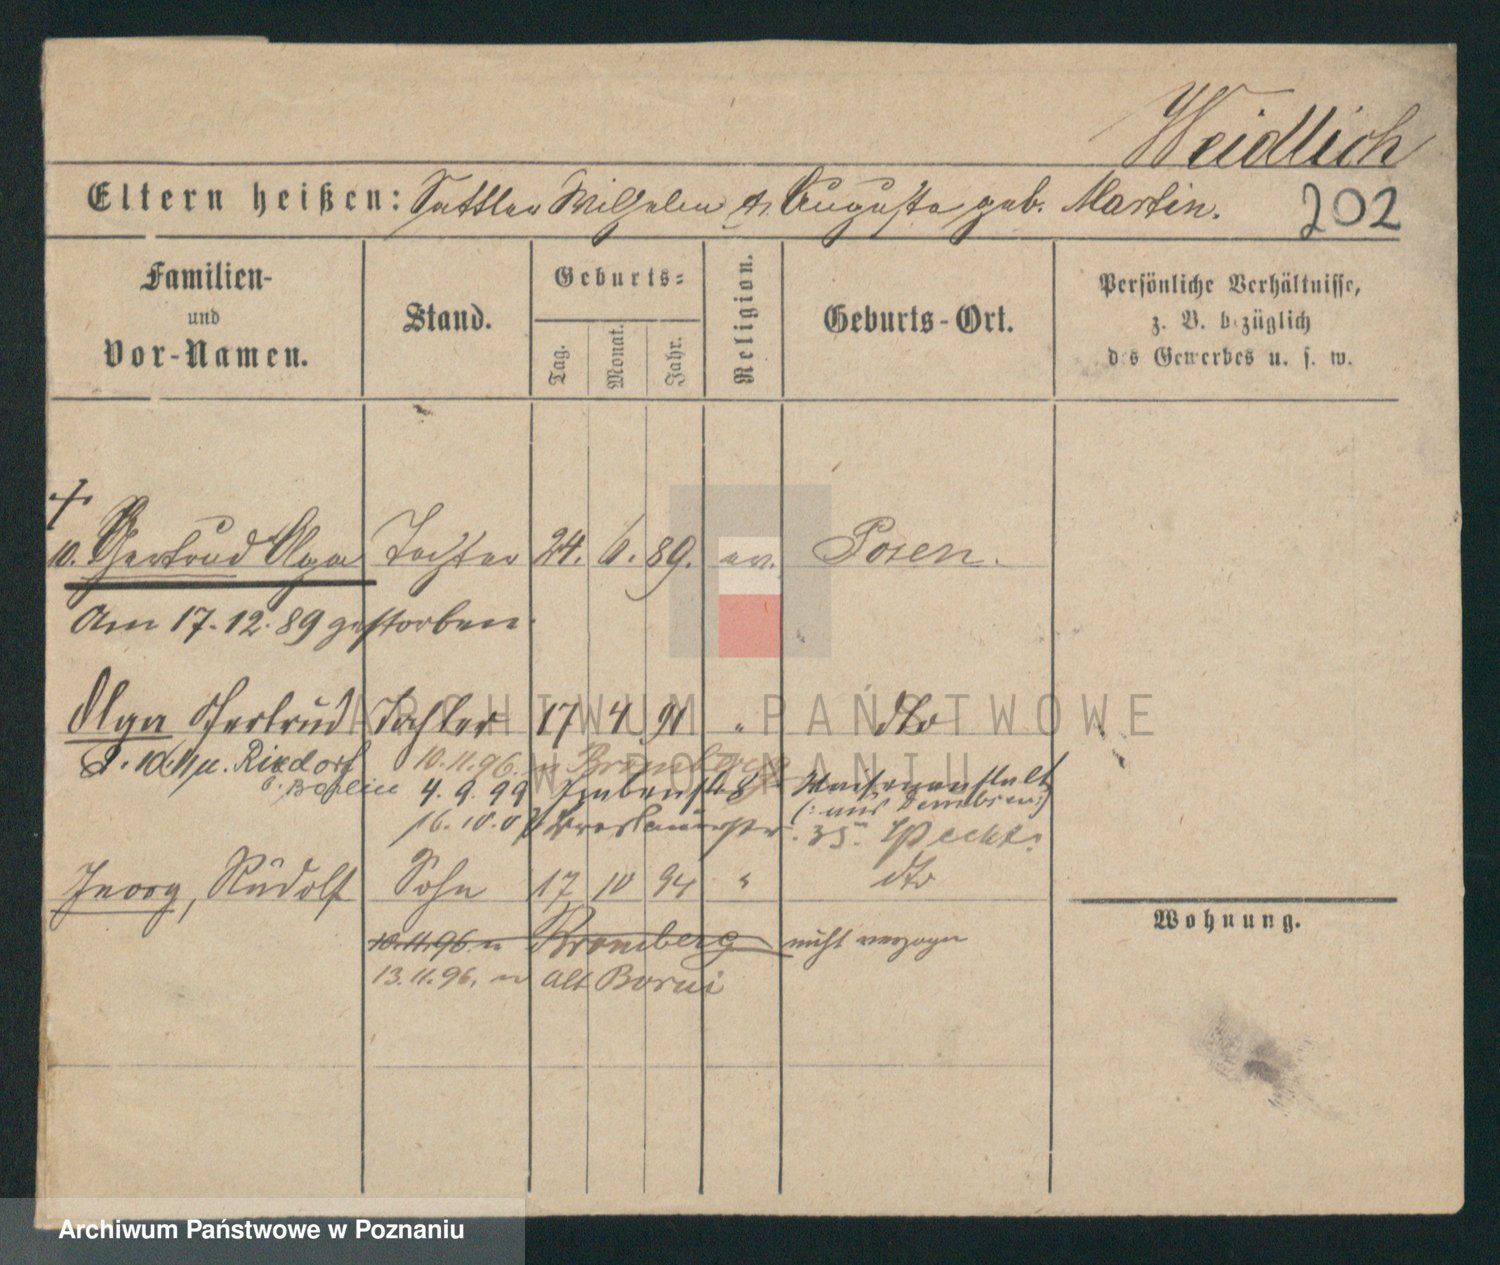 Weidlich
Eltern heißen: Sattler Wilhelm & Auguste geb. Martin.
202
Familien-
und
Vor-Namen.
Stand.
Geburts-
Tag.
Monat.
Jahr.
Religion.
Geburts-Ort.
Persönliche Verhältnisse,
z. B. bezüglich
des Gewerbes u. s. w.
10. Gertrud Olga Tochter 24. 6. 89. ev. Posen.
Am 17.12.89 gestorben.
Olga Gertrud Tochter 17 4 91 " dto
Rixdorf 10.11.96. n Bromberg
b. Berlin 4.9.99 48 Waisenanstalt
16.10.0 Breslauerstr. 35
Georg, Rudolf Sohn 17 10 94 " dto
10.11.96. n Bromberg nicht verzogen
13.11.96. n Alt Borui
Wohnung.
ARCHIWUM PAŃSTWOWE
W POZNANIU
Archiwum Państwowe w Poznaniu